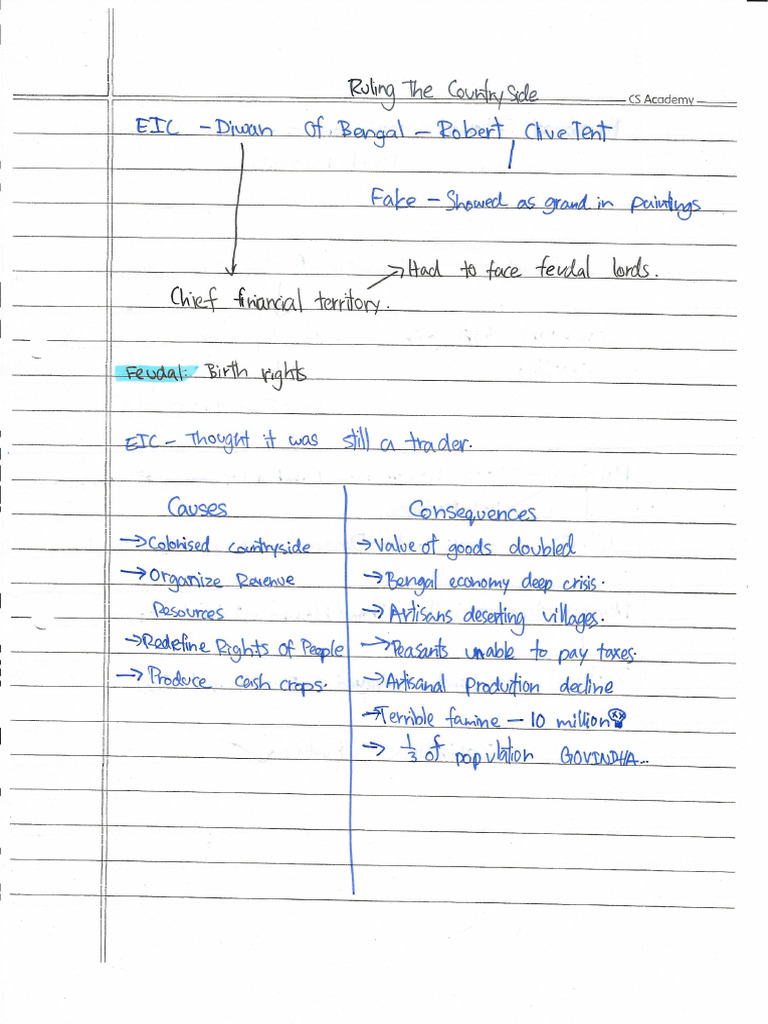 Ruling The CountrySide
CS Academy
EIC – Diwan Of Bengal – Robert Clive Tent
Fake – Showed as grand in paintings
→ Had to face feudal lords.
Chief financial territory.
Feudal: Birth rights
EIC – Thought it was still a trader.
Causes
→ Colonised countryside
→ Organize Revenue
Resources
→ Redefine Rights of People
→ Produce cash crops.
Consequences
→ Value of goods doubled
→ Bengal economy deep crisis.
→ Artisans deserting villages.
→ Peasants unable to pay taxes.
→ Artisanal Prodution decline
→ Terrible famine – 10 million
→ 1/3 of population GOVINDHA...